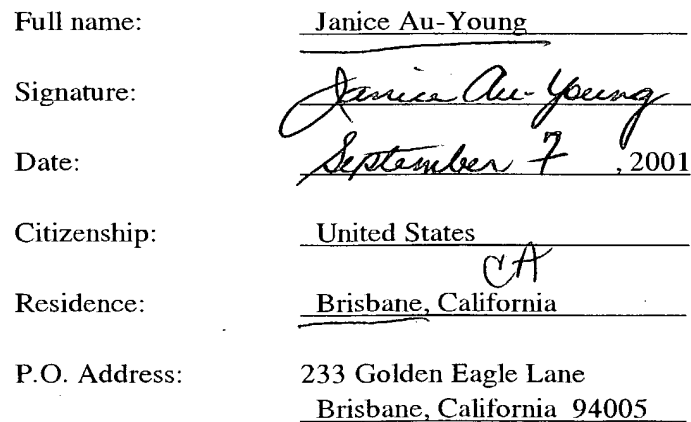 Full name: Janice Au-Young
Signature: Janice Au-Young
Date: September 7, 2001
Citizenship: United States
CA
Residence: Brisbane, California
P.O. Address: 233 Golden Eagle Lane
Brisbane, California 94005